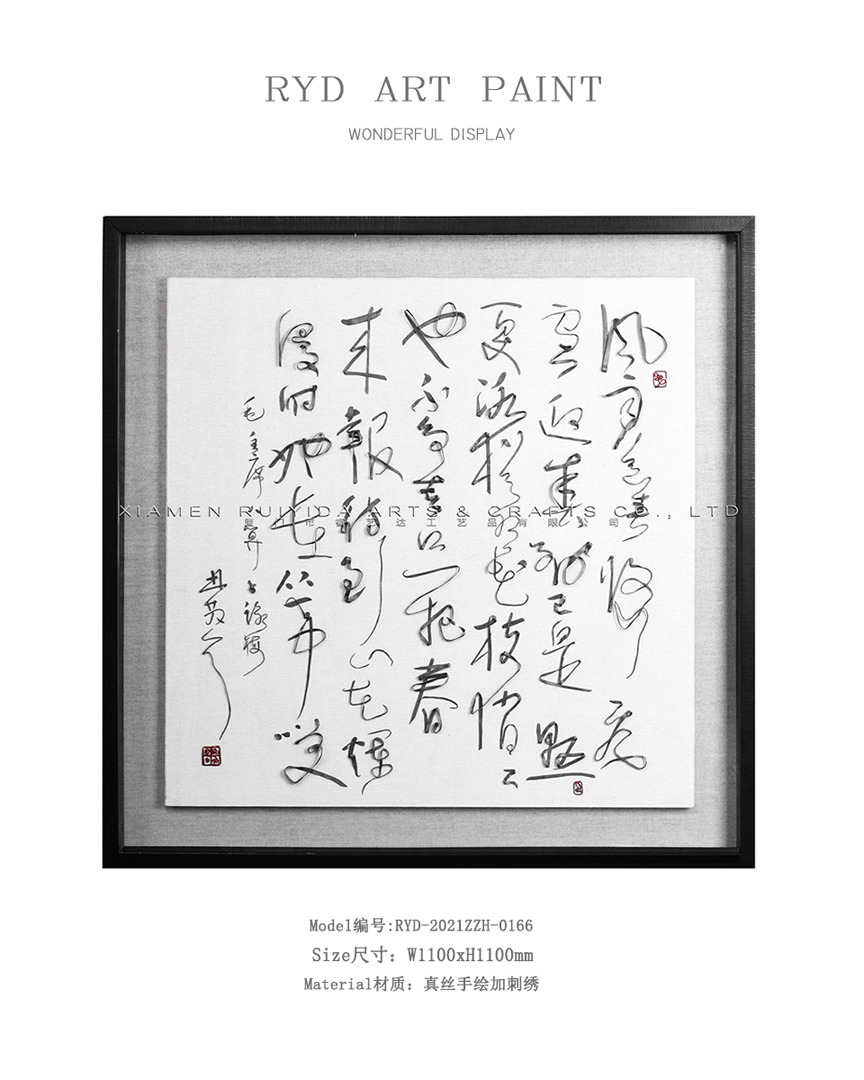 RYD ART PAINT
WONDERFUL DISPLAY
风雨送春归 飞
雪迎春到已是悬
冰犹有花枝俏
也不争春只把春
来報待到山花爛
漫时她在丛中笑
毛主席 卜算子咏梅
XIAMEN RUIYIDA ARTS & CRAFTS CO., LTD
厦门市睿艺达工艺品有限公司
Model编号:RYD-2021ZZH-0166
Size尺寸：W1100xH1100mm
Material材质：真丝手绘加刺绣